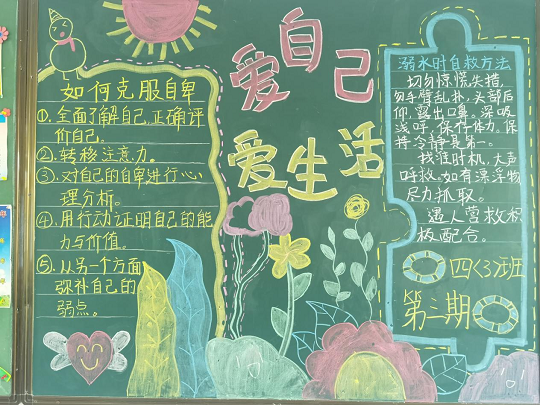 爱自己
爱生活
如何克服自卑
①.全面了解自己,正确评
价自己。
②.转移注意力。
③.对自己的自卑进行心
理分析。
④.用行动证明自己的能
力与价值。
⑤.从另一个方面
弥补自己的
弱点。
溺水时自救方法
切勿惊慌失措,
勿手臂乱扑,头部后
仰,露出口鼻。深吸
浅呼,保存体力。保
持冷静是第一。
找准时机,大声
呼救,如有漂浮物
尽力抓取。
遇人营救积
极配合。
四<3>班
第三期